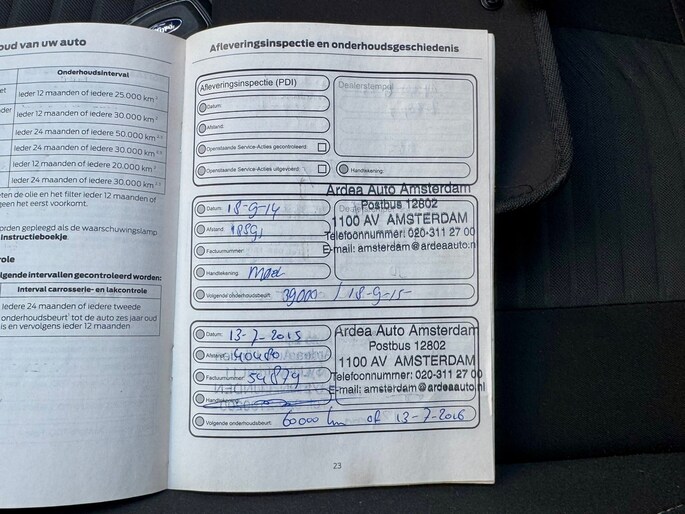 Ford
oud van uw auto
Onderhoudsinterval
Ieder 12 maanden of iedere 25.000 km
Ieder 12 maanden of iedere 30.000 km
Ieder 24 maanden of iedere 50.000 km
Ieder 24 maanden of iedere 30.000 km
Ieder 12 maanden of iedere 20.000
Ieder 24 maanden of iedere 30.000 km
eten de olie en het filter ieder 12 maanden of
geen het eerst voorkomt.
orden gepleegd als de waarschuwingslamp
instructieboekje.
role
lgende intervallen gecontroleerd worden:
Interval carrosserie- en lakcontrole
Iedere 24 maanden of iedere tweede
onderhoudsbeurt tot de auto zes jaar oud
is en vervolgens ieder 12 maanden
Afleveringsinspectie en onderhoudsgeschiedenis
Afleveringsinspectie (PDI)
Dealerstempel
Datum:
Afstand:
Openstaande Service-Acties gecontroleerd:
Openstaande Service-Acties uitgevoerd:
Handtekening:
Datum: 18-9-14
Afstand:
Factuurnummer:
Handtekening:
Volgende onderhoudsbeurt: 39000 / 18-9-15
Ardea Auto Amsterdam
Postbus 12802
1100 AV AMSTERDAM
Telefoonnummer: 020-311 27 00
E-mail: amsterdam@ardeaauto.nl
Datum: 13-7-2015
Afstand: 40480
Factuurnummer: 54879
Volgende onderhoudsbeurt: 60000 km of 13-7-2016
Ardea Auto Amsterdam
Postbus 12802
1100 AV AMSTERDAM
Telefoonnummer: 020-311 27 00
E-mail: amsterdam@ardeaauto.nl
23